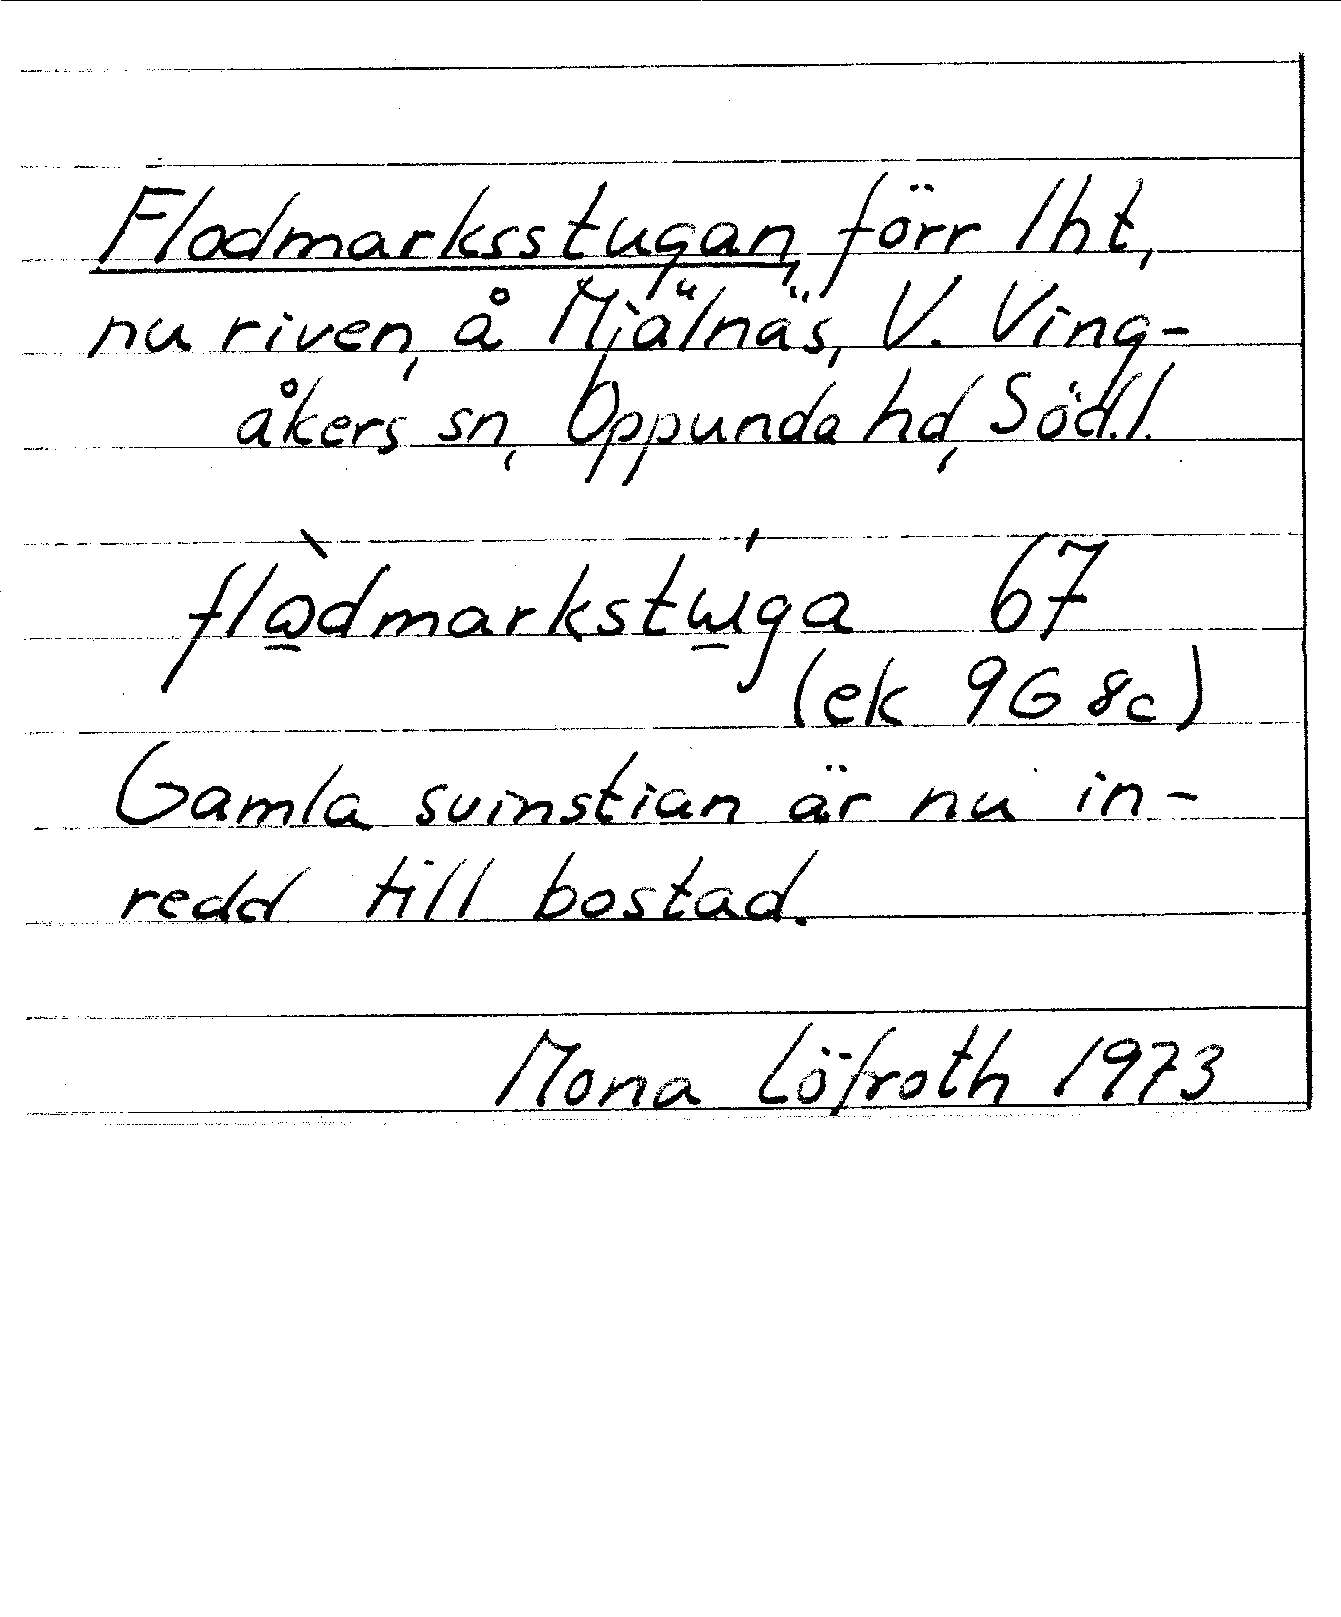 Flodmarksstugan, förr lht,
nu riven, å Mjälnäs, V. Ving-
åkers sn, Oppunda hd, Södl.
flὼ̲dmarkstώ̲ga 67
(ek 9G 8c)
Gamla svinstian är nu in-
redd till bostad.
Mona Löfroth 1973